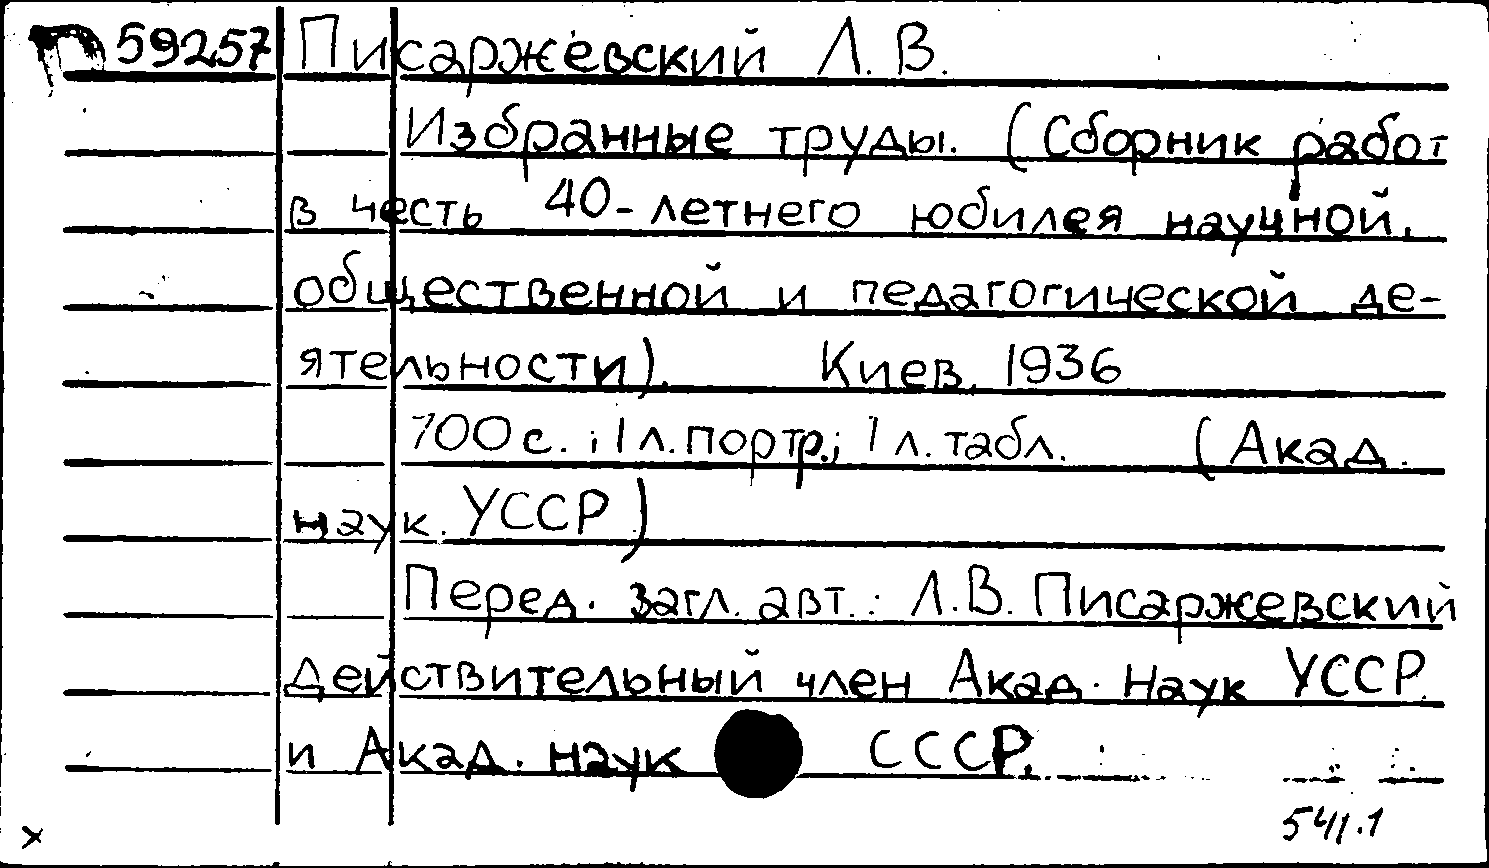 П 59257 Писаржевский Л. В.
Избранные труды. (Сборник работ
в честь 40-летнего юбилея научной,
общественной и педагогической де-
ятельности). Киев, 1936
100 с.; 1 л. портр.; 1 л. табл. (Акад.
наук. УССР)
Перед. загл. авт.: Л.В. Писаржевский
действительный член Акад. наук УССР
и Акад. наук СССР.
541.1
x